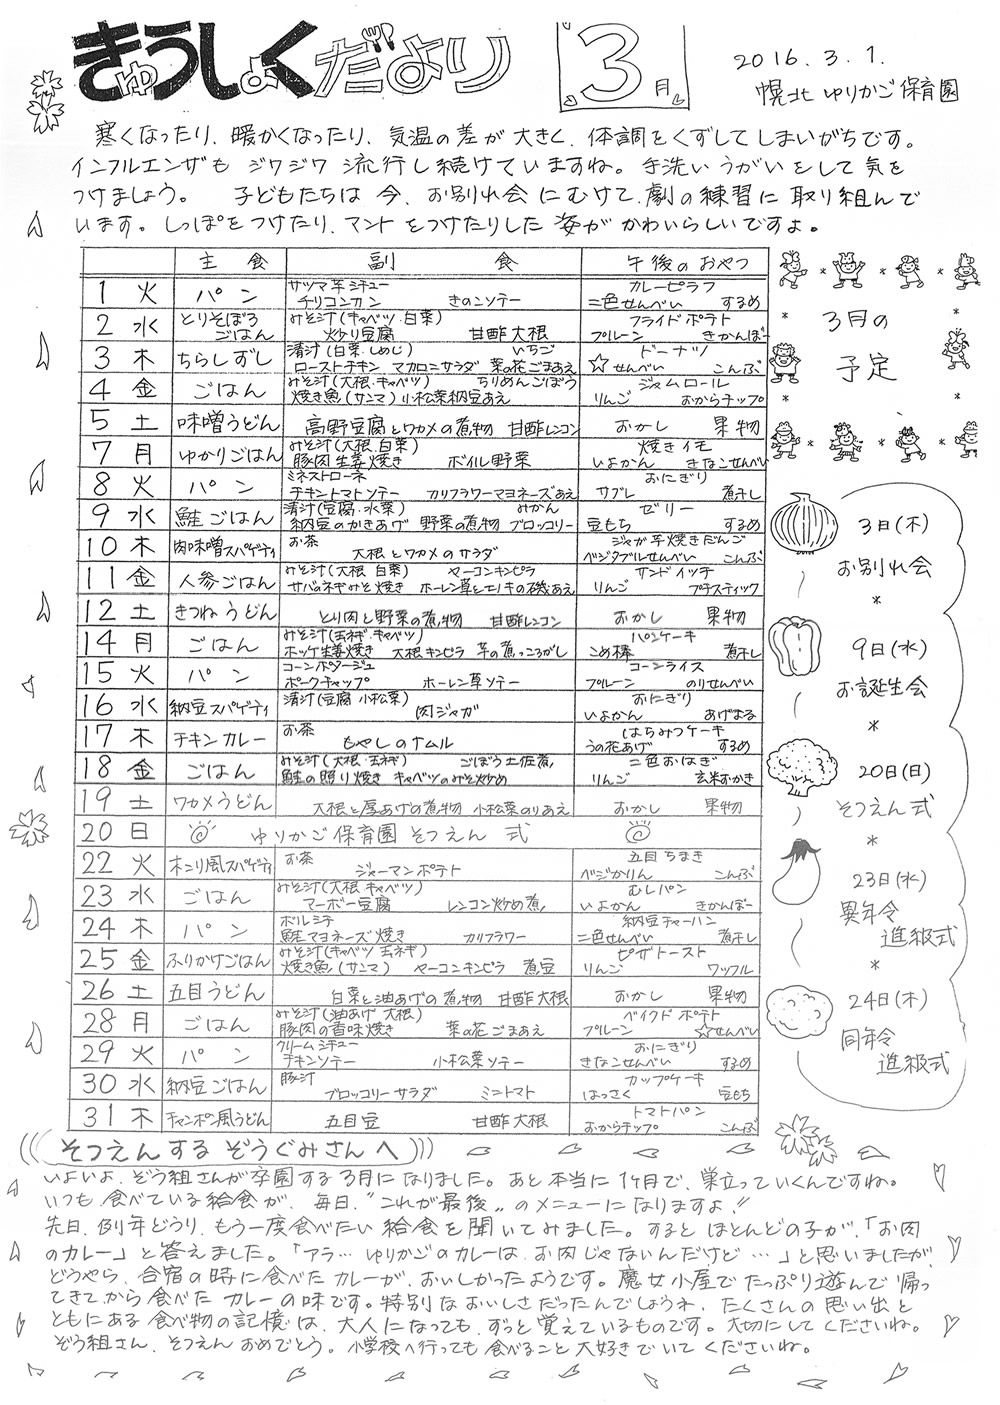 きゅうしょくだより
3月
2016.3.1.
幌北ゆりかご保育園
寒くなったり、暖かくなったり、気温の差が大きく、体調をくずしてしまいがちです。
インフルエンザもジワジワ流行し続けていますね。手洗いうがいをして気を
つけましょう。 子どもたちは今、お別れ会にむけて、劇の練習に取り組んで
います。しっぽをつけたり、マントをつけたりした姿がかわいらしいですよ。
主食 副食 午後のおやつ
1 火 パン サツマ芋シチュー チリコンカン きのこソテー カレーピラフ 二色せんべい するめ
2 水 とりそぼろごはん みそ汁(キャベツ・白菜) 炒り豆腐 甘酢大根 フライドポテト プルーン きかんぼー
3 木 ちらしずし 清汁(白菜・しめじ) いちご ローストチキン マカロニサラダ 菜の花ごまあえ ドーナツ ☆せんべい こんぶ
4 金 ごはん みそ汁(大根・キャベツ) ちりめんごぼう 焼き魚(サンマ) 小松菜納豆あえ ジャムロール りんご おからチップ
5 土 味噌うどん 高野豆腐とワカメの煮物 甘酢レンコン おかし 果物
7 月 ゆかりごはん みそ汁(大根・白菜) 豚肉生姜焼き ボイル野菜 焼きイモ いよかん きなこせんべい
8 火 パン ミネストローネ チキントマトソテー カリフラワーマヨネーズあえ おにぎり サブレ 煮干し
9 水 鮭ごはん 清汁(豆腐・水菜) みかん 納豆のかきあげ 野菜の煮物 ブロッコリー ゼリー 豆もち するめ
10 木 肉味噌スパゲティ お茶 大根とワカメのサラダ ジャガ芋焼きだんご ベジタブルせんべい こんぶ
11 金 人参ごはん みそ汁(大根 白菜) ヤーコンキンピラ サバのネギみそ焼き ホーレン草とエノキの磯あえ サンドイッチ りんご プチスティック
12 土 きつねうどん とり肉と野菜の煮物 甘酢レンコン おかし 果物
14 月 ごはん みそ汁(玉ネギ・キャベツ) ホッケ生姜焼き 大根キンピラ 芋の煮っころがし パンケーキ こめ棒 煮干し
15 火 パン コーンポタージュ ポークチャップ ホーレン草ソテー コーンライス プルーン のりせんべい
16 水 納豆スパゲティ 清汁(豆腐 小松菜) 肉ジャガ おにぎり いよかん あげまる
17 木 チキンカレー お茶 もやしのナムル はちみつケーキ うの花あげ するめ
18 金 ごはん みそ汁(大根・玉ネギ) ごぼう土佐煮 鮭の照り焼き キャベツのみそ炒め 二色おはぎ りんご 玄米おかき
19 土 ワカメうどん 大根と厚あげの煮物 小松菜のりあえ おかし 果物
20 日 ゆりかご保育園 そつえん式
22 火 木こり風スパゲティ お茶 ジャーマンポテト 五目ちまき ベジかりん こんぶ
23 水 ごはん みそ汁(大根 キャベツ) マーボー豆腐 レンコン炒め煮 むしパン いよかん きかんぼー
24 木 パン ボルシチ 鮭マヨネーズ焼き カリフラワー 納豆チャーハン 二色せんべい 煮干し
25 金 ふりかけごはん みそ汁(キャベツ 玉ネギ) 焼き魚(サンマ) ヤーコンキンピラ 煮豆 ピザトースト りんご ワッフル
26 土 五目うどん 白菜と油あげの煮物 甘酢大根 おかし 果物
28 月 ごはん みそ汁(油あげ 大根) 豚肉の香味焼き 菜の花ごまあえ ベイクドポテト プルーン ☆せんべい
29 火 パン クリームシチュー チキンソテー 小松菜ソテー おにぎり きなこせんべい するめ
30 水 納豆ごはん 豚汁 ブロッコリーサラダ ミニトマト カップケーキ はっさく 豆もち
31 木 チャンポン風うどん 五目豆 甘酢大根 トマトパン おからチップ こんぶ
3月の
予定
3日(木)
お別れ会
*
9日(水)
お誕生会
*
20日(日)
そつえん式
*
23日(水)
異年令
進級式
*
24日(木)
同年令
進級式
(((そつえんする ぞうぐみさんへ)))
いよいよ、ぞう組さんが卒園する3月になりました。あと本当に1ヶ月で、巣立っていくんですね。
いつも食べている給食が、毎日、"これが最後"のメニューになりますよ!
先日、例年どうり、もう一度食べたい給食を聞いてみました。するとほとんどの子が、「お肉
のカレー」と答えました。「アラ…ゆりかごのカレーは、お肉じゃないんだけど…」と思いましたが、
どうやら、合宿の時に食べたカレーが、おいしかったようです。魔女小屋でたっぷり遊んで帰っ
てきてから食べたカレーの味です。特別なおいしさだったんでしょうネ。たくさんの思い出と
ともにある食べ物の記憶は、大人になっても、ずっと覚えているものです。大切にしてくださいね。
ぞう組さん、そつえんおめでとう。小学校へ行っても食べること大好きでいてくださいね。